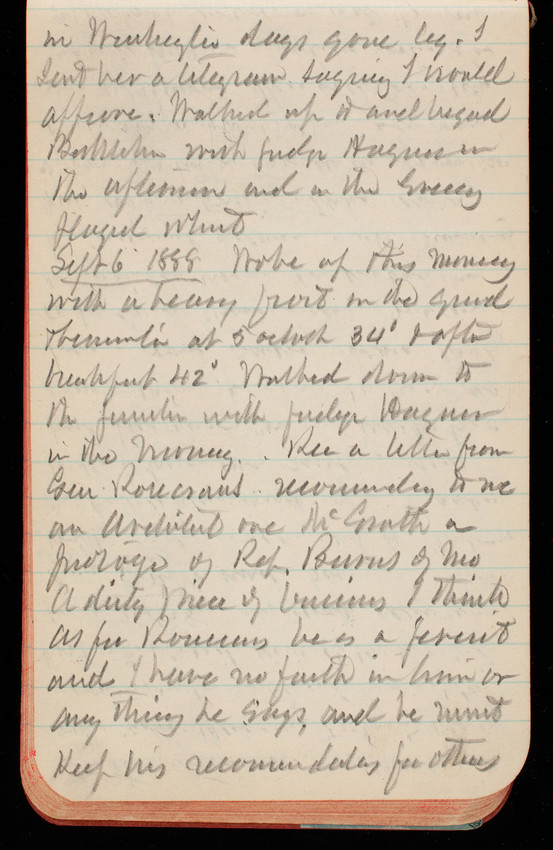 in Washington days gone by. I
Sent her a telegram saying I would
approve. Walked up to and beyond
with Judge Hagner in
the afternoon and in the Evening
played whist
Sept 6 1888 Woke up this morning
with a heavy frost on the ground
thermometer at 5 oclock 34° & after
breakfast 42° Walked down to
the with Judge Hagner
in the morning. Rec a letter from
Gen Rosecrans recommending to me
an Architect one McGrath a
protoge of Rep. Burns of Mo
A dirty piece of business I think
As for Rosecrans he is a Jesuit
and I have no faith in him or
any thing he says, and he must
Keep his recommendations for others